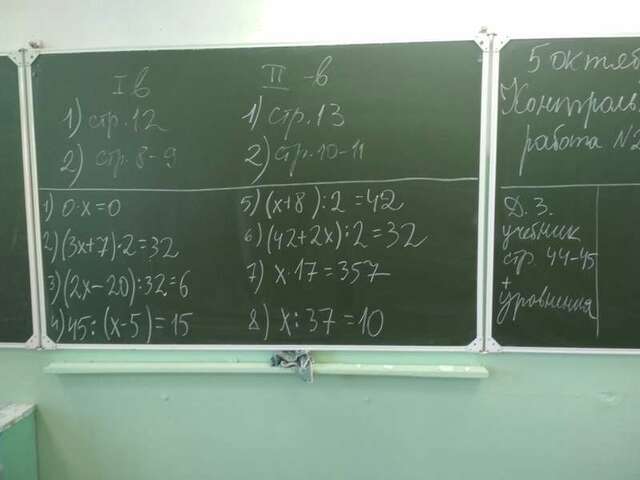 I в
1) стр. 12
2) стр. 8-9
II - в
1) стр. 13
2) стр. 10-11
1) 0·x=0
2) (3x+7)·2=32
3) (2x-20):32=6
4) 45:(x-5)=15
5) (x+8):2=42
6) (42+2x):2=32
7) x·17=357
8) x:37=10
5 октяб
Контроль
работа N2
Д. З.
учебник
стр 44-45
+
уровнения